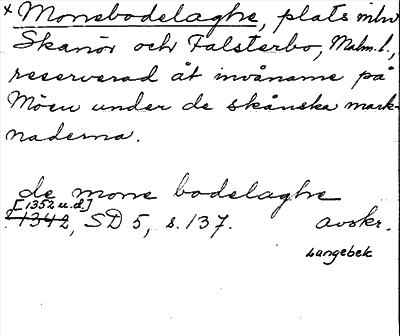 x Monebodelaghe, plats mlw
Skanör och Falsterbo, Malm. l.,
reserverad åt invånarne på
Möen under de skånska mark-
naderna.
de mone bodelaghe
[1352 u.d.]
1342, SD 5, s. 137. avskr.
Langebek